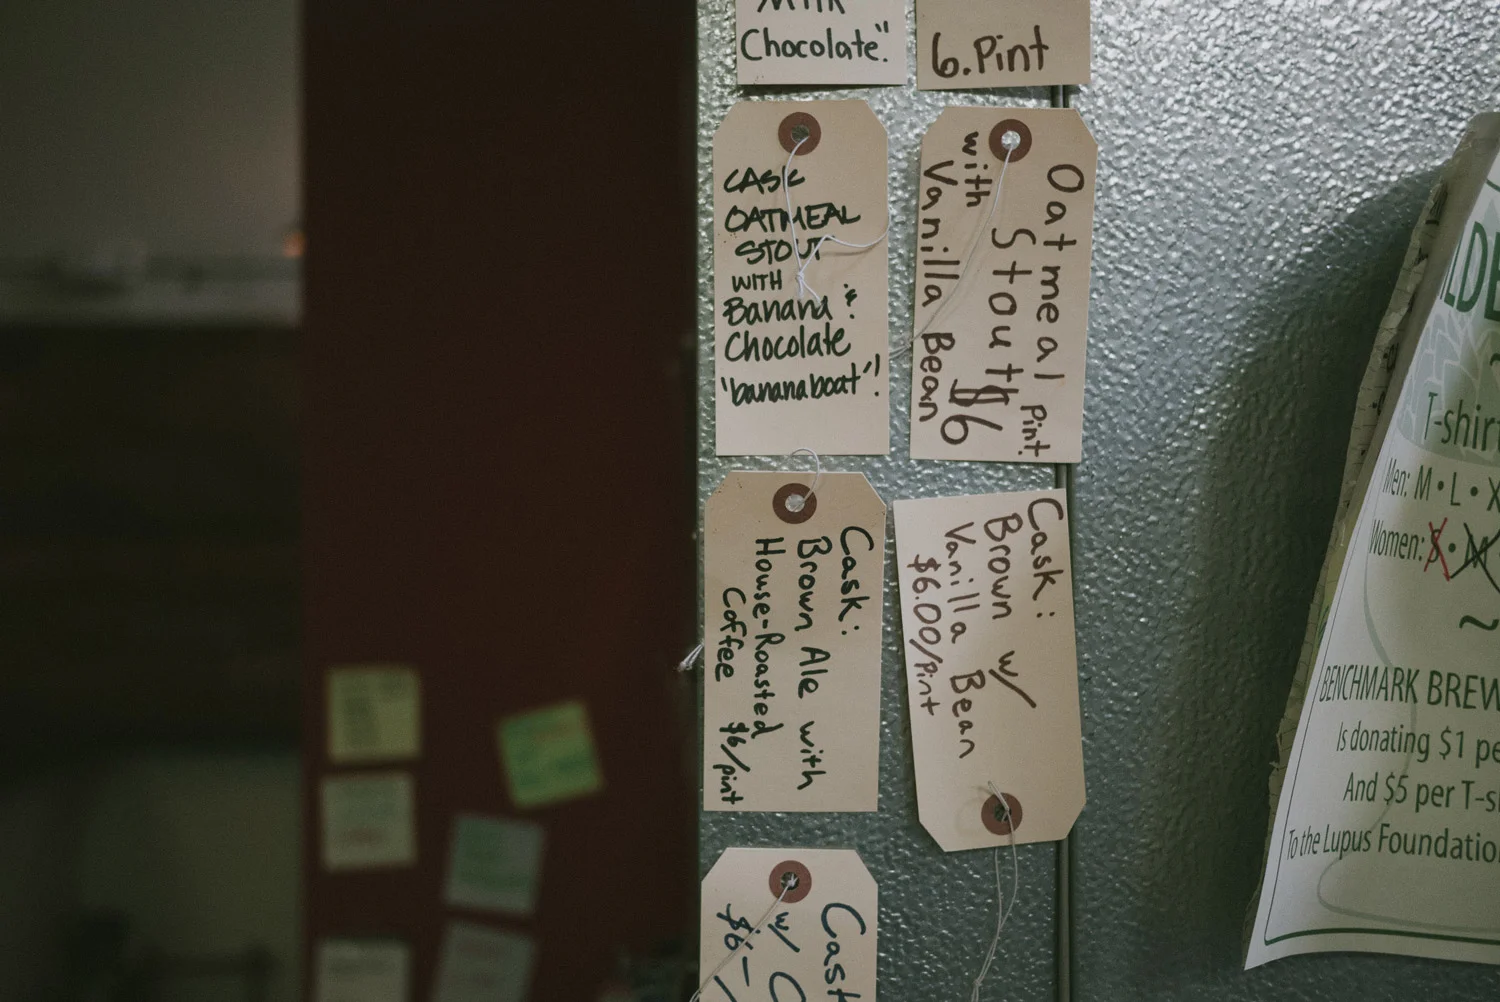 Milk
Chocolate."
6. Pint
CASK
OATMEAL
STOUT
WITH
Banana &
Chocolate
"bananaboat"!
Oatmeal Pint.
Stout $6
with
Vanilla Bean
Cask:
Brown Ale with
House-Roasted
Coffee $6/pint
Cask:
Brown w/
Vanilla Bean
$6.00/Pint
Cask
w/
$6-
T-shir
Men: M • L • X
Women: S • M
~
BENCHMARK BREW
Is donating $1 pe
And $5 per T-s
To the Lupus Foundatio